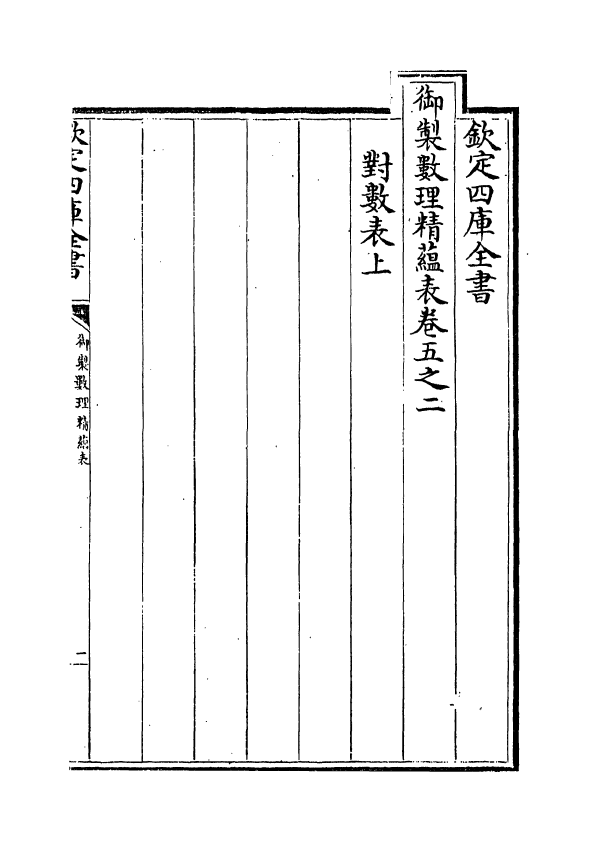 欽定四庫全書
御製數理精蘊表卷五之二
對數表上
欽定四庫全書
御製數理精蘊表
二